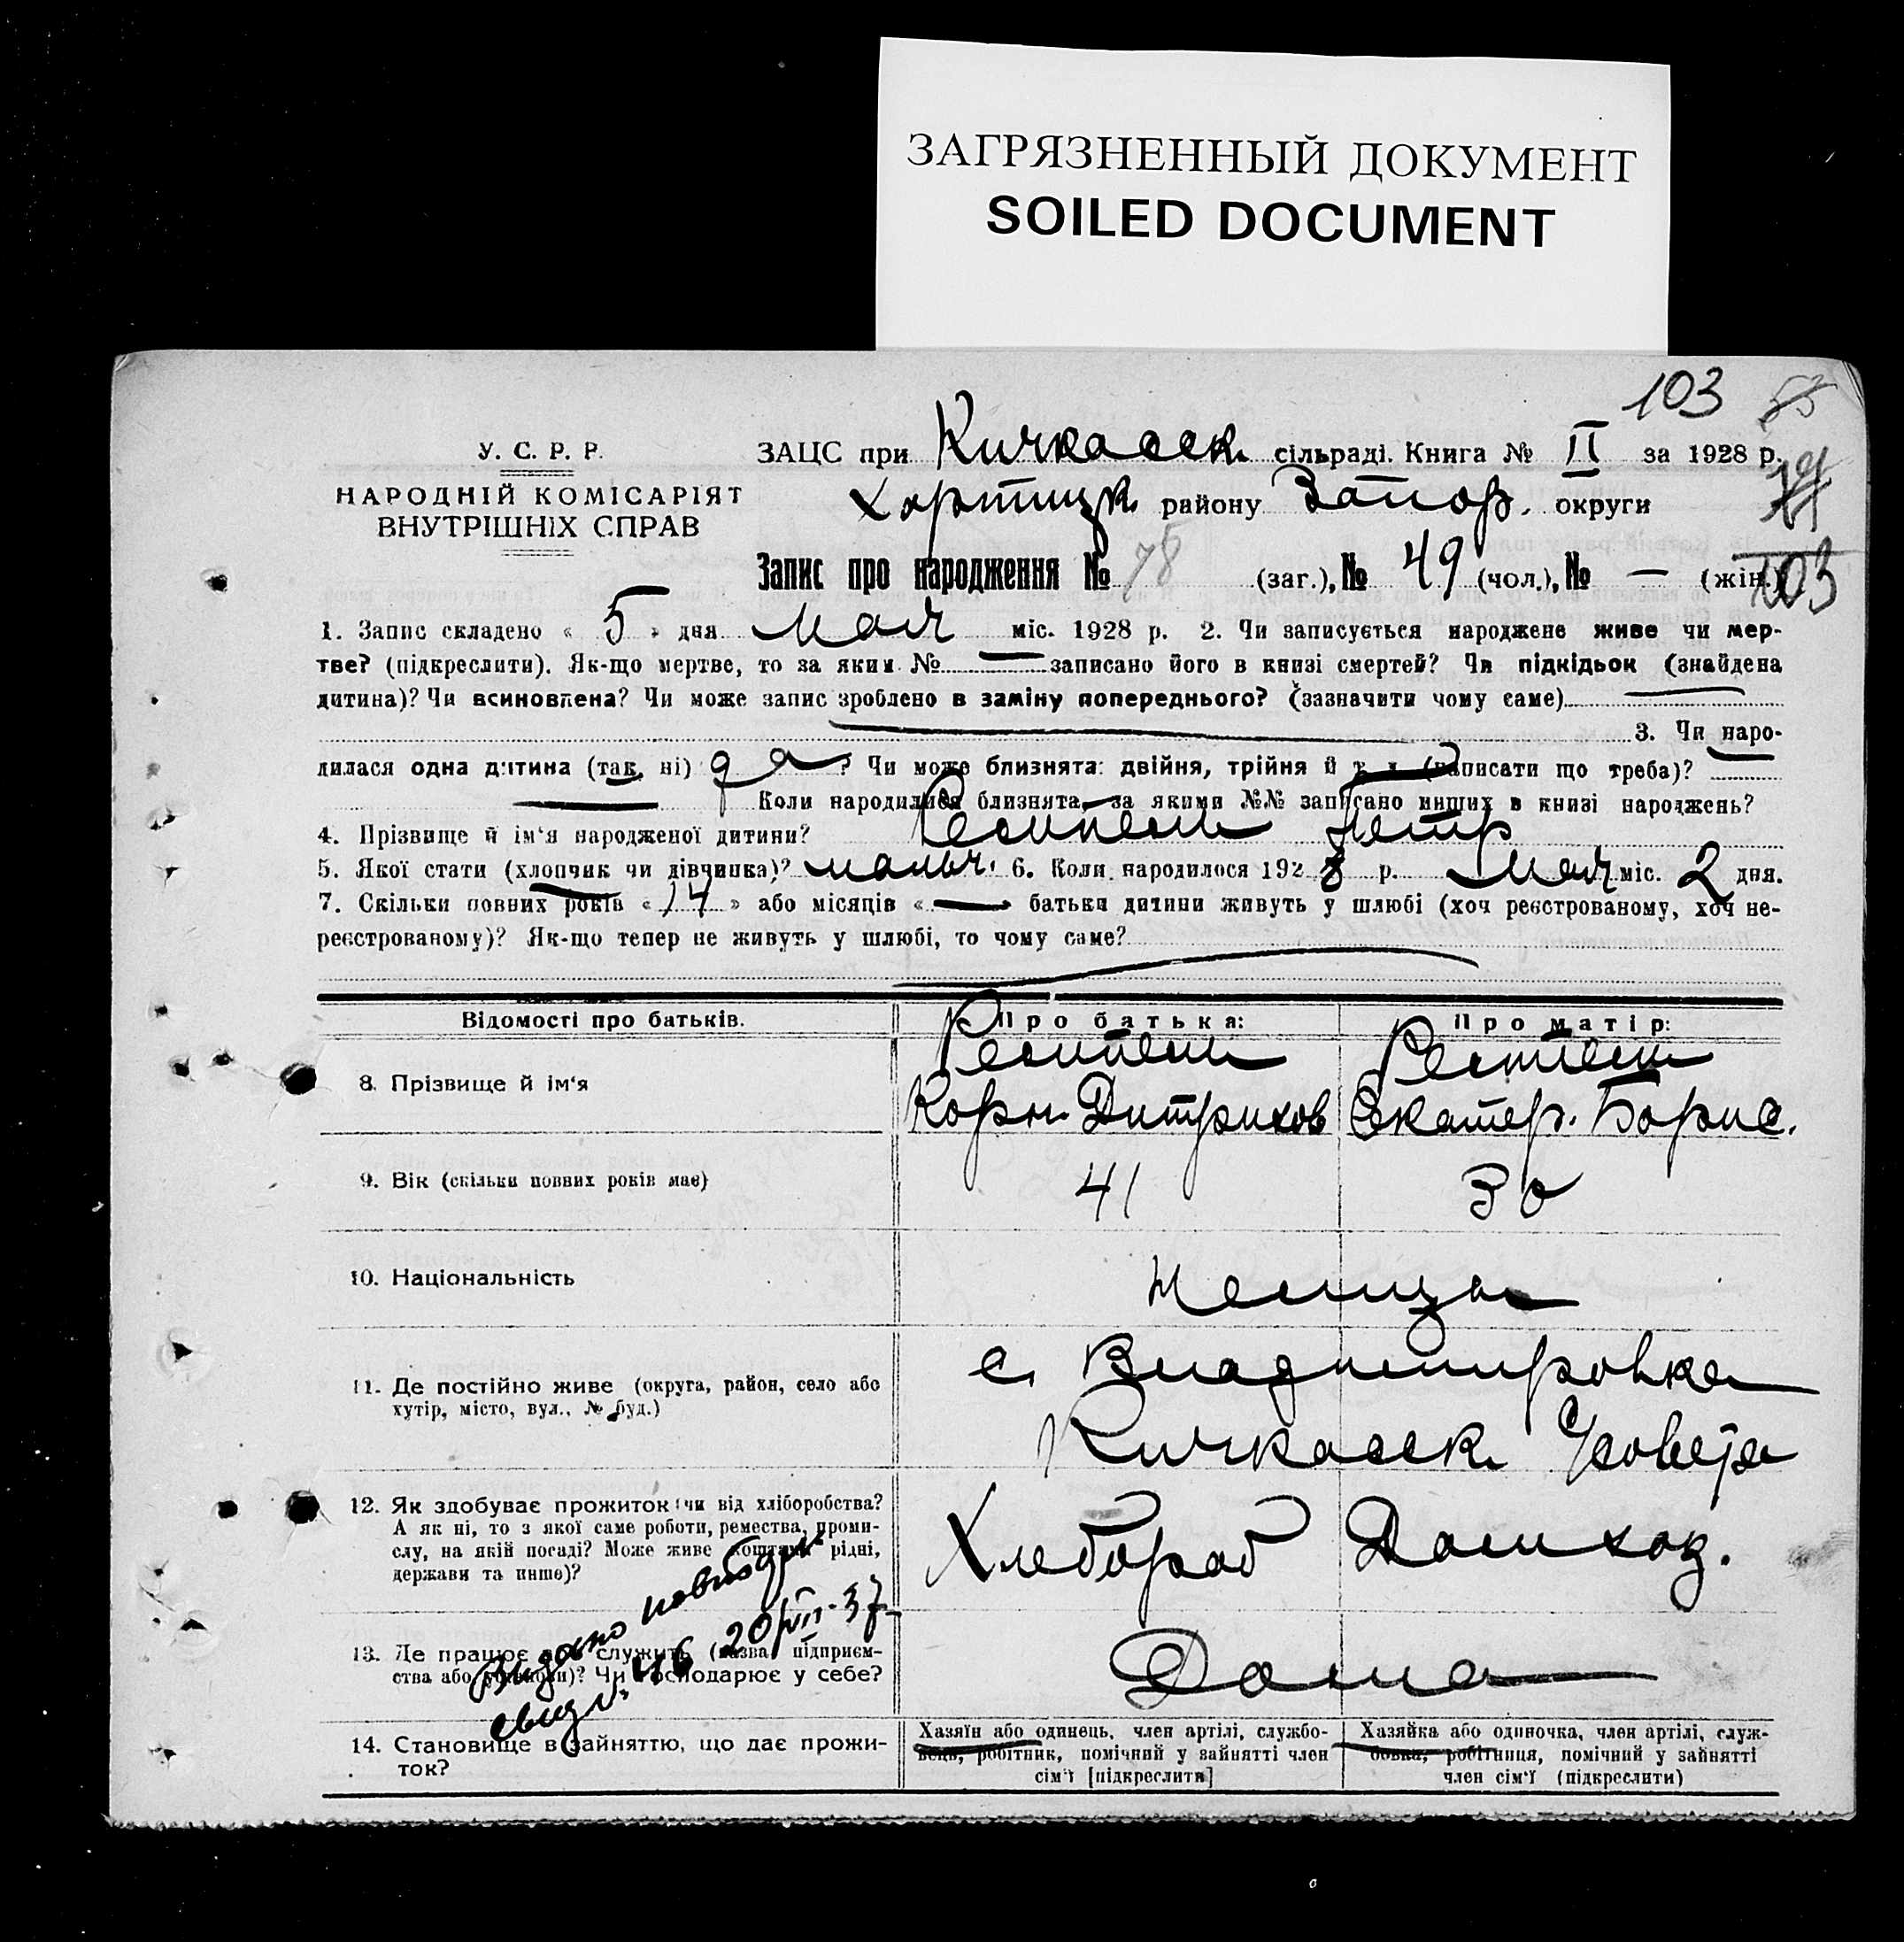 ЗАГРЯЗНЕННЫЙ ДОКУМЕНТ
SOILED DOCUMENT
103
У. С. Р. Р.
НАРОДНІЙ КОМІСАРІЯТ
ВНУТРІШНІХ СПРАВ
ЗАЦС при Кичкасск. сільраді. Книга № II за 1928 р.
Хортицк района Запор. округи
Запис про народження № 78 (заг.), № 49 (чол.), № — (жін.)
103
1. Запис складено « 5 » дня мая міс. 1928 р. 2. Чи записується народжене живе чи мер-
тве? (підкреслити). Як-що мертве, то за яким № — записано його в книзі смертей? Чи підкідьок (знайдена
дитина)? Чи всиновлена? Чи може запис зроблено в заміну попереднього? (зазначити чому саме)
3. Чи наро-
дилася одна дитина (так, ні) да ? Чи може близнята: двійня, трійня й т. д. (написати що треба)?
Коли народилися близнята, за якими №№ записано инших в книзі народжень?
4. Прізвище й ім'я народженої дитини? Петр
5. Якої стати (хлопчик чи дівчинка)? мальч. 6. Коли народилося 1928 р. мая міс. 2 дня.
7. Скільки повних років « 14 » або місяців « — » батьки дитини живуть у шлюбі (хоч реєстрованому, хоч не-
реєстрованому)? Як-що тепер не живуть у шлюбі, то чому саме?
Відомості про батьків.
Про батька:
Про матір:
8. Прізвище й ім'я
Корн. Дитрихов
Екатер. Борис.
9. Вік (скільки повних років має)
41
30
10. Національність
немцы
11. Де постійно живе (округа, район, село або
хутір, місто, вул., № буд.)
с. Владимировка
Кичкасск.
12. Як здобуває прожиток: чи від хліборобства?
А як ні, то з якої саме роботи, ремества, проми-
слу, на якій посаді? Може живе коштами рідні,
держави та инше)?
Хлебороб
Домхоз.
13. Де працює або служить (назва підприєм-
ства або установи)? Чи господарює у себе?
Дома
Видано
свид. № 46 20/VII-37
14. Становище в зайняттю, що дає прожи-
ток?
Хазяїн або одинець, член артілі, службо-
вець, робітник, помічний у зайнятті член
сім'ї [підкреслити]
Хазяйка або одиночка, член артілі, служ-
бовка, робітниця, помічний у зайнятті
член сім'ї (підкреслити)